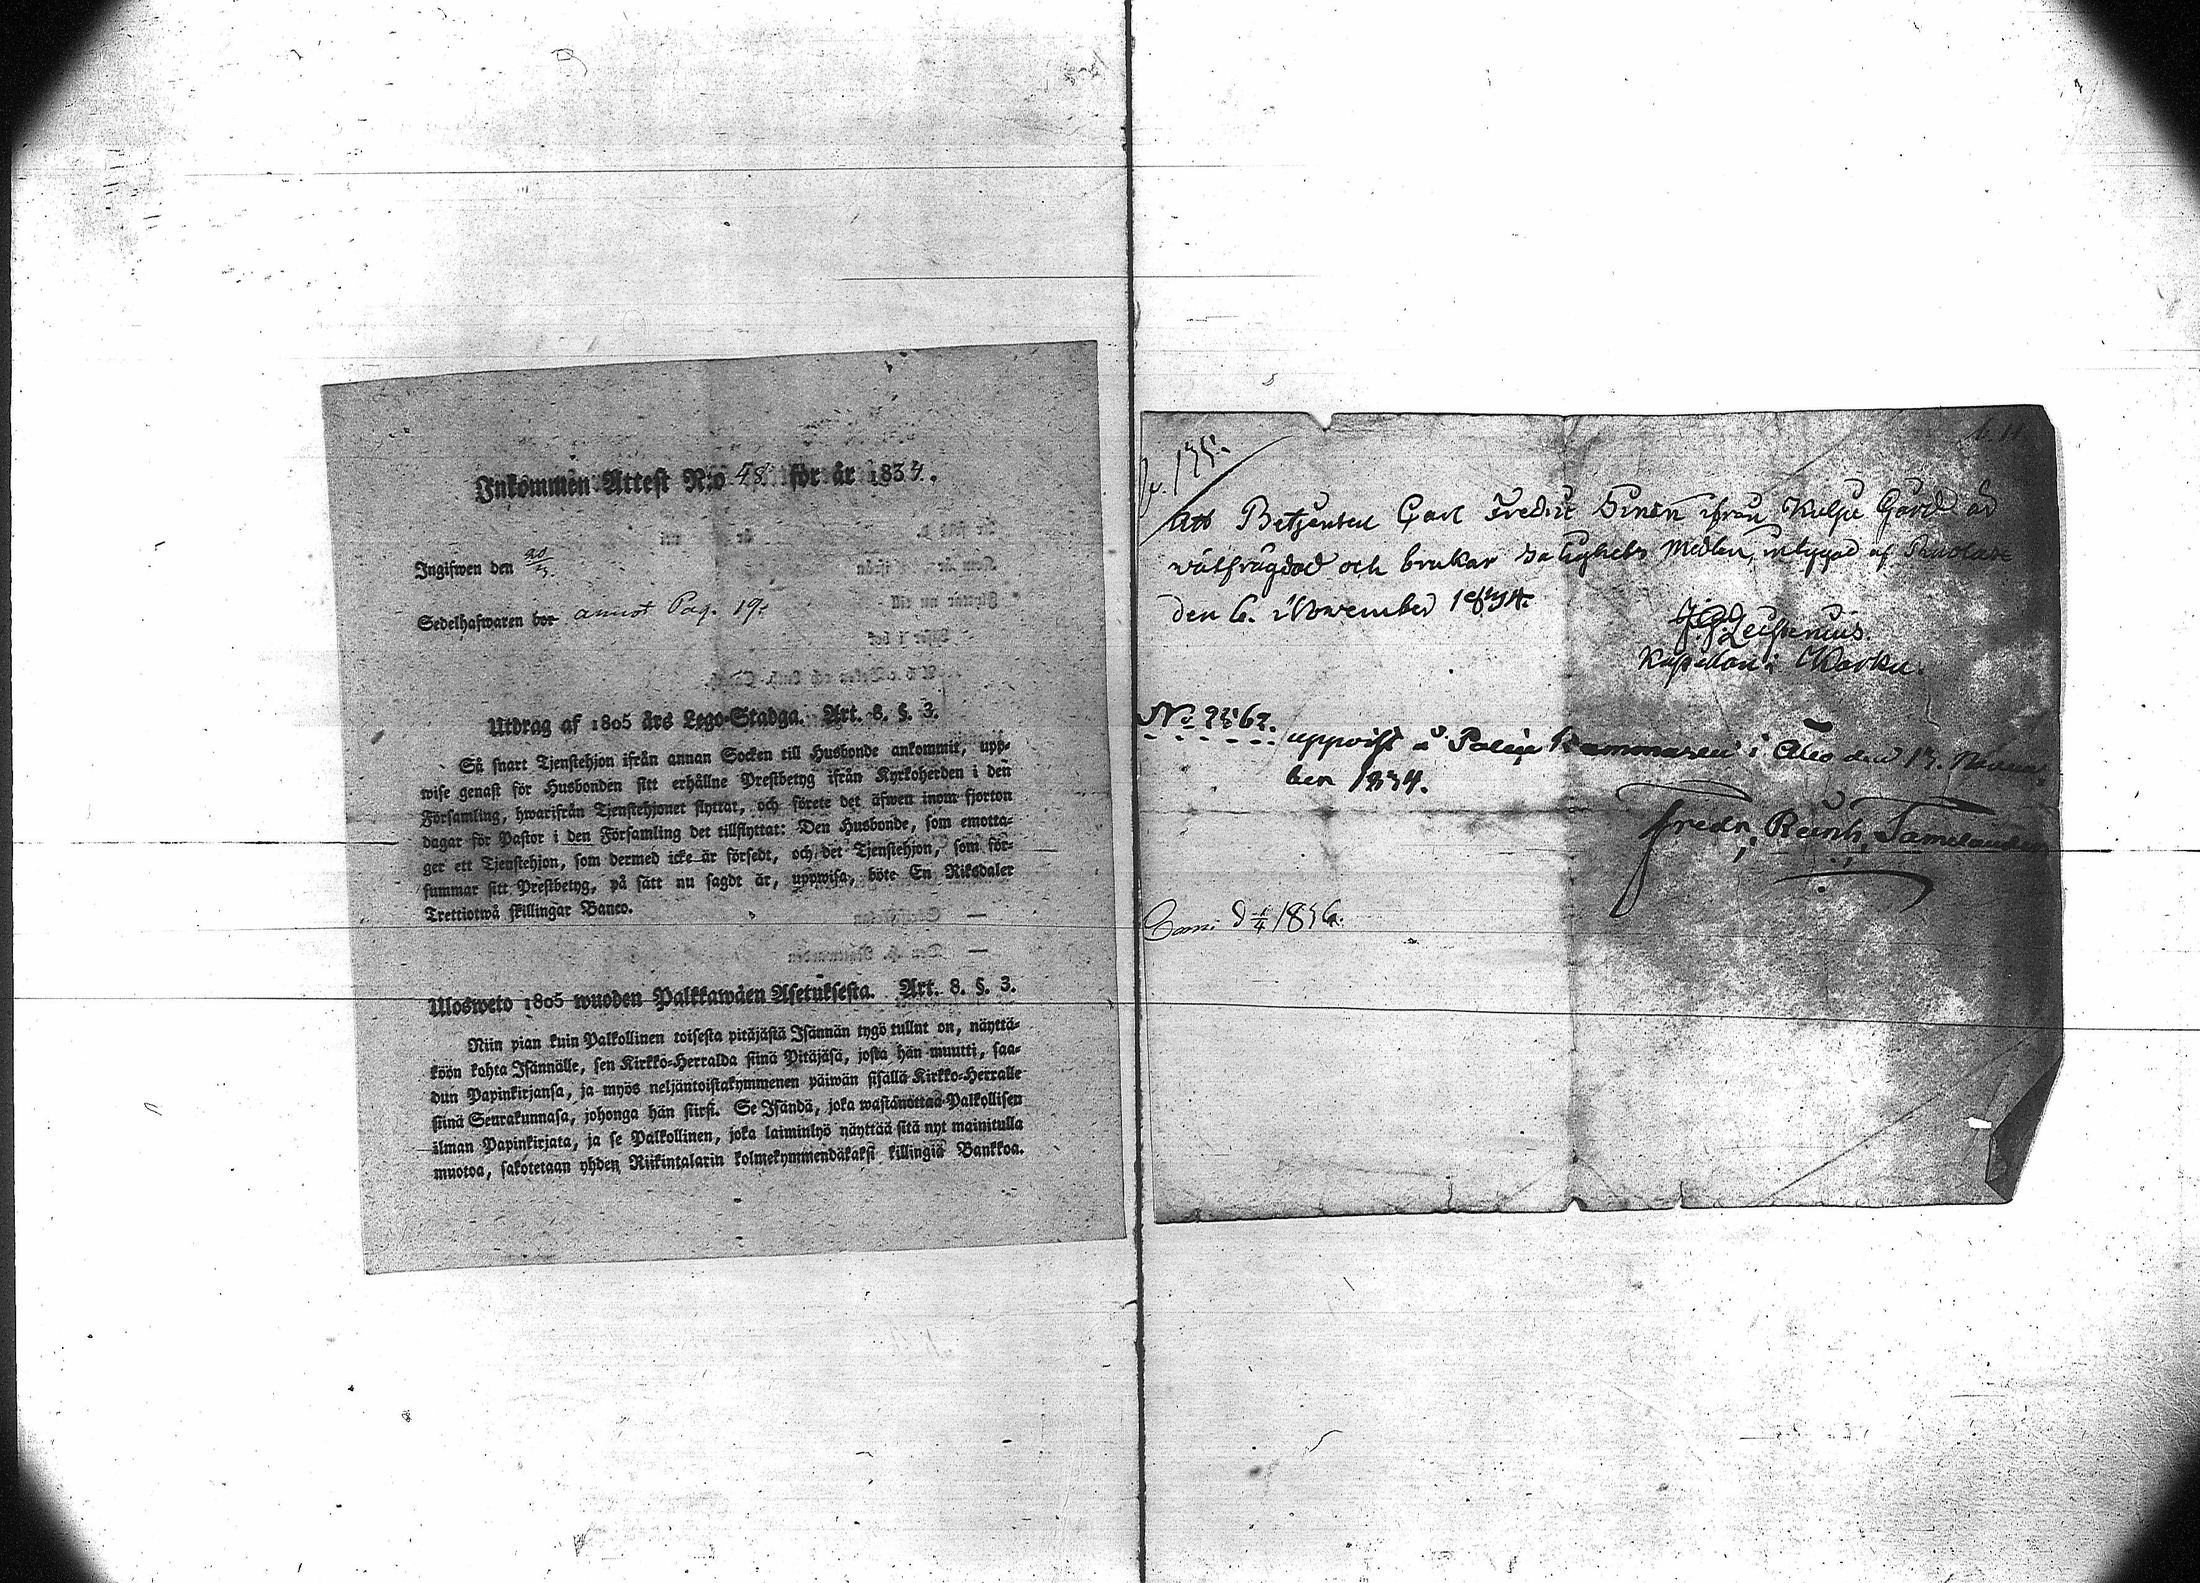 Inkommen Attest N:o 48 för år 1834.
Ingifwen den 20/3.
Sedelhafwaren bor annot Pag. 19.
Utdrag af 1805 års Lego-Stadga. Art. 8. §. 3.
Så snart Tjenstehjon ifrån annan Socken till Husbonde ankommit, upp-
wise genast för Husbonden sitt erhållne Prestbetyg ifrån Kyrkoherden i den
Församling, hwarifrån Tjenstehjonet flyttat, och förete det äfwen inom fjorton
dagar för Pastor i den Församling det tillflyttat: Den Husbonde, som emotta-
ger ett Tjenstehjon, som dermed icke är försedt, och det Tjenstehjon, som för-
summar sitt Prestbetyg, på sätt nu sagdt är, uppwisa, böte En Riksdaler
Trettiotwå skillingar Banco.
Ulosweto 1805 wuoden Palkkawäen Asetuksesta. Art. 8. §. 3.
Niin pian kuin Palkollinen toisesta pitäjästä Isännän tygö tullut on, näyttä-
köön kohta Isännälle, sen Kirkko-Herralda siinä Pitäjäsä, josta hän muutti, saa-
dun Papinkirjansa, ja myös neljäntoistakymmenen päiwän sisällä Kirkko-Herralle
siinä Seurakunnasa, johonga hän siirsi. Se Isändä, joka wastanottaa Palkollisen
ilman Papinkirjata, ja se Palkollinen, joka laiminlyö näyttää sitä nyt mainitulla
muotoa, sakotetaan yhden Riikintalarin kolmekymmendäkaksi killingiä Bankkoa.
Att Betjenten Carl Fredric ifrån Kulju Gård är
wälfrägdad och brukar Salighets Medlen, intygad af
den 6. November 1834.
Kapellan i Karku.
No 2562.
uppwist å Poleije Kammaren i Åbo den 17. Novem-
ber 1834.
Fredr. Reinh. Tamelander